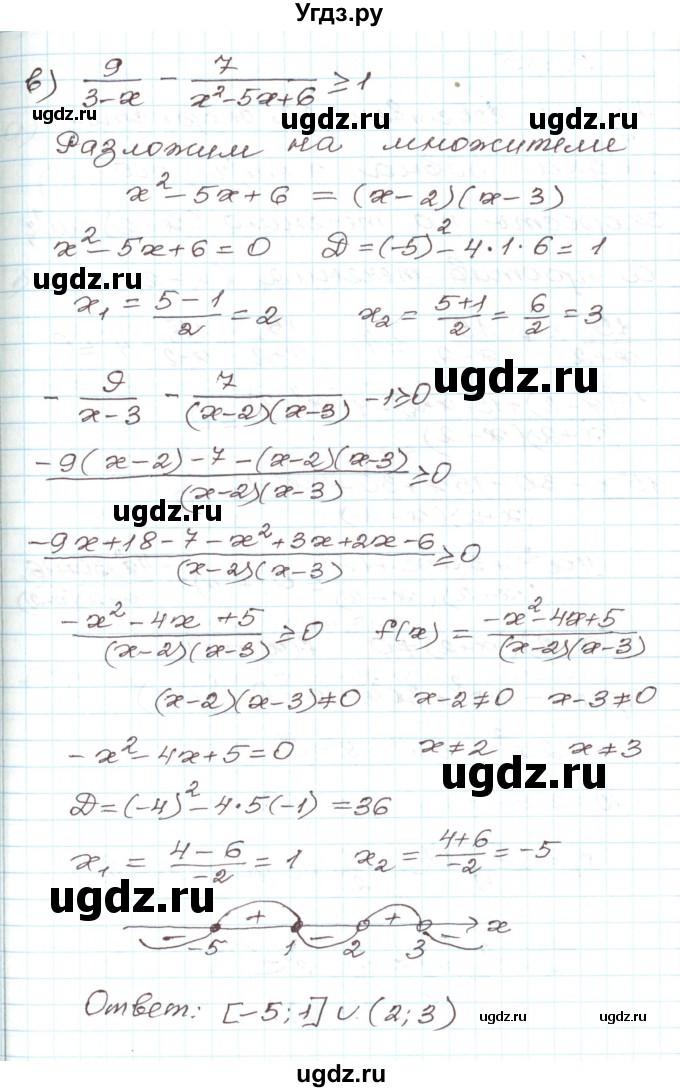 Угдз.ру
в) 9/(3-x) - 7/(x²-5x+6) ≥ 1
ugdz.ru ugdz.ru ugdz.ru
Разложим на множители
x² - 5x + 6 = (x-2)(x-3)
x² - 5x + 6 = 0 D = (-5)² - 4·1·6 = 1
ugdz.ru
x₁ = (5-1)/2 = 2 x₂ = (5+1)/2 = 6/2 = 3
ugdz.ru
- 9/(x-3) - 7/((x-2)(x-3)) - 1 ≥ 0
ugdz.ru
(-9(x-2) - 7 - (x-2)(x-3))/((x-2)(x-3)) ≥ 0
ugdz.ru
(-9x+18-7-x²+3x+2x-6)/((x-2)(x-3)) ≥ 0
(-x²-4x+5)/((x-2)(x-3)) ≥ 0 f(x) = (-x²-4x+5)/((x-2)(x-3))
ugdz.ru ugdz.ru
(x-2)(x-3) ≠ 0 x-2 ≠ 0 x-3 ≠ 0
-x²-4x+5 = 0 x ≠ 2 x ≠ 3
ugdz.ru
D = (-4)² - 4·5(-1) = 36
x₁ = (4-6)/-2 = 1 x₂ = (4+6)/-2 = -5
ugdz.ru
- + - + - x
-5 1 2 3
ugdz.ru
Ответ: [-5; 1] ∪ (2; 3)
ugdz.ru ugdz.ru
ugdz.ru ugdz.ru